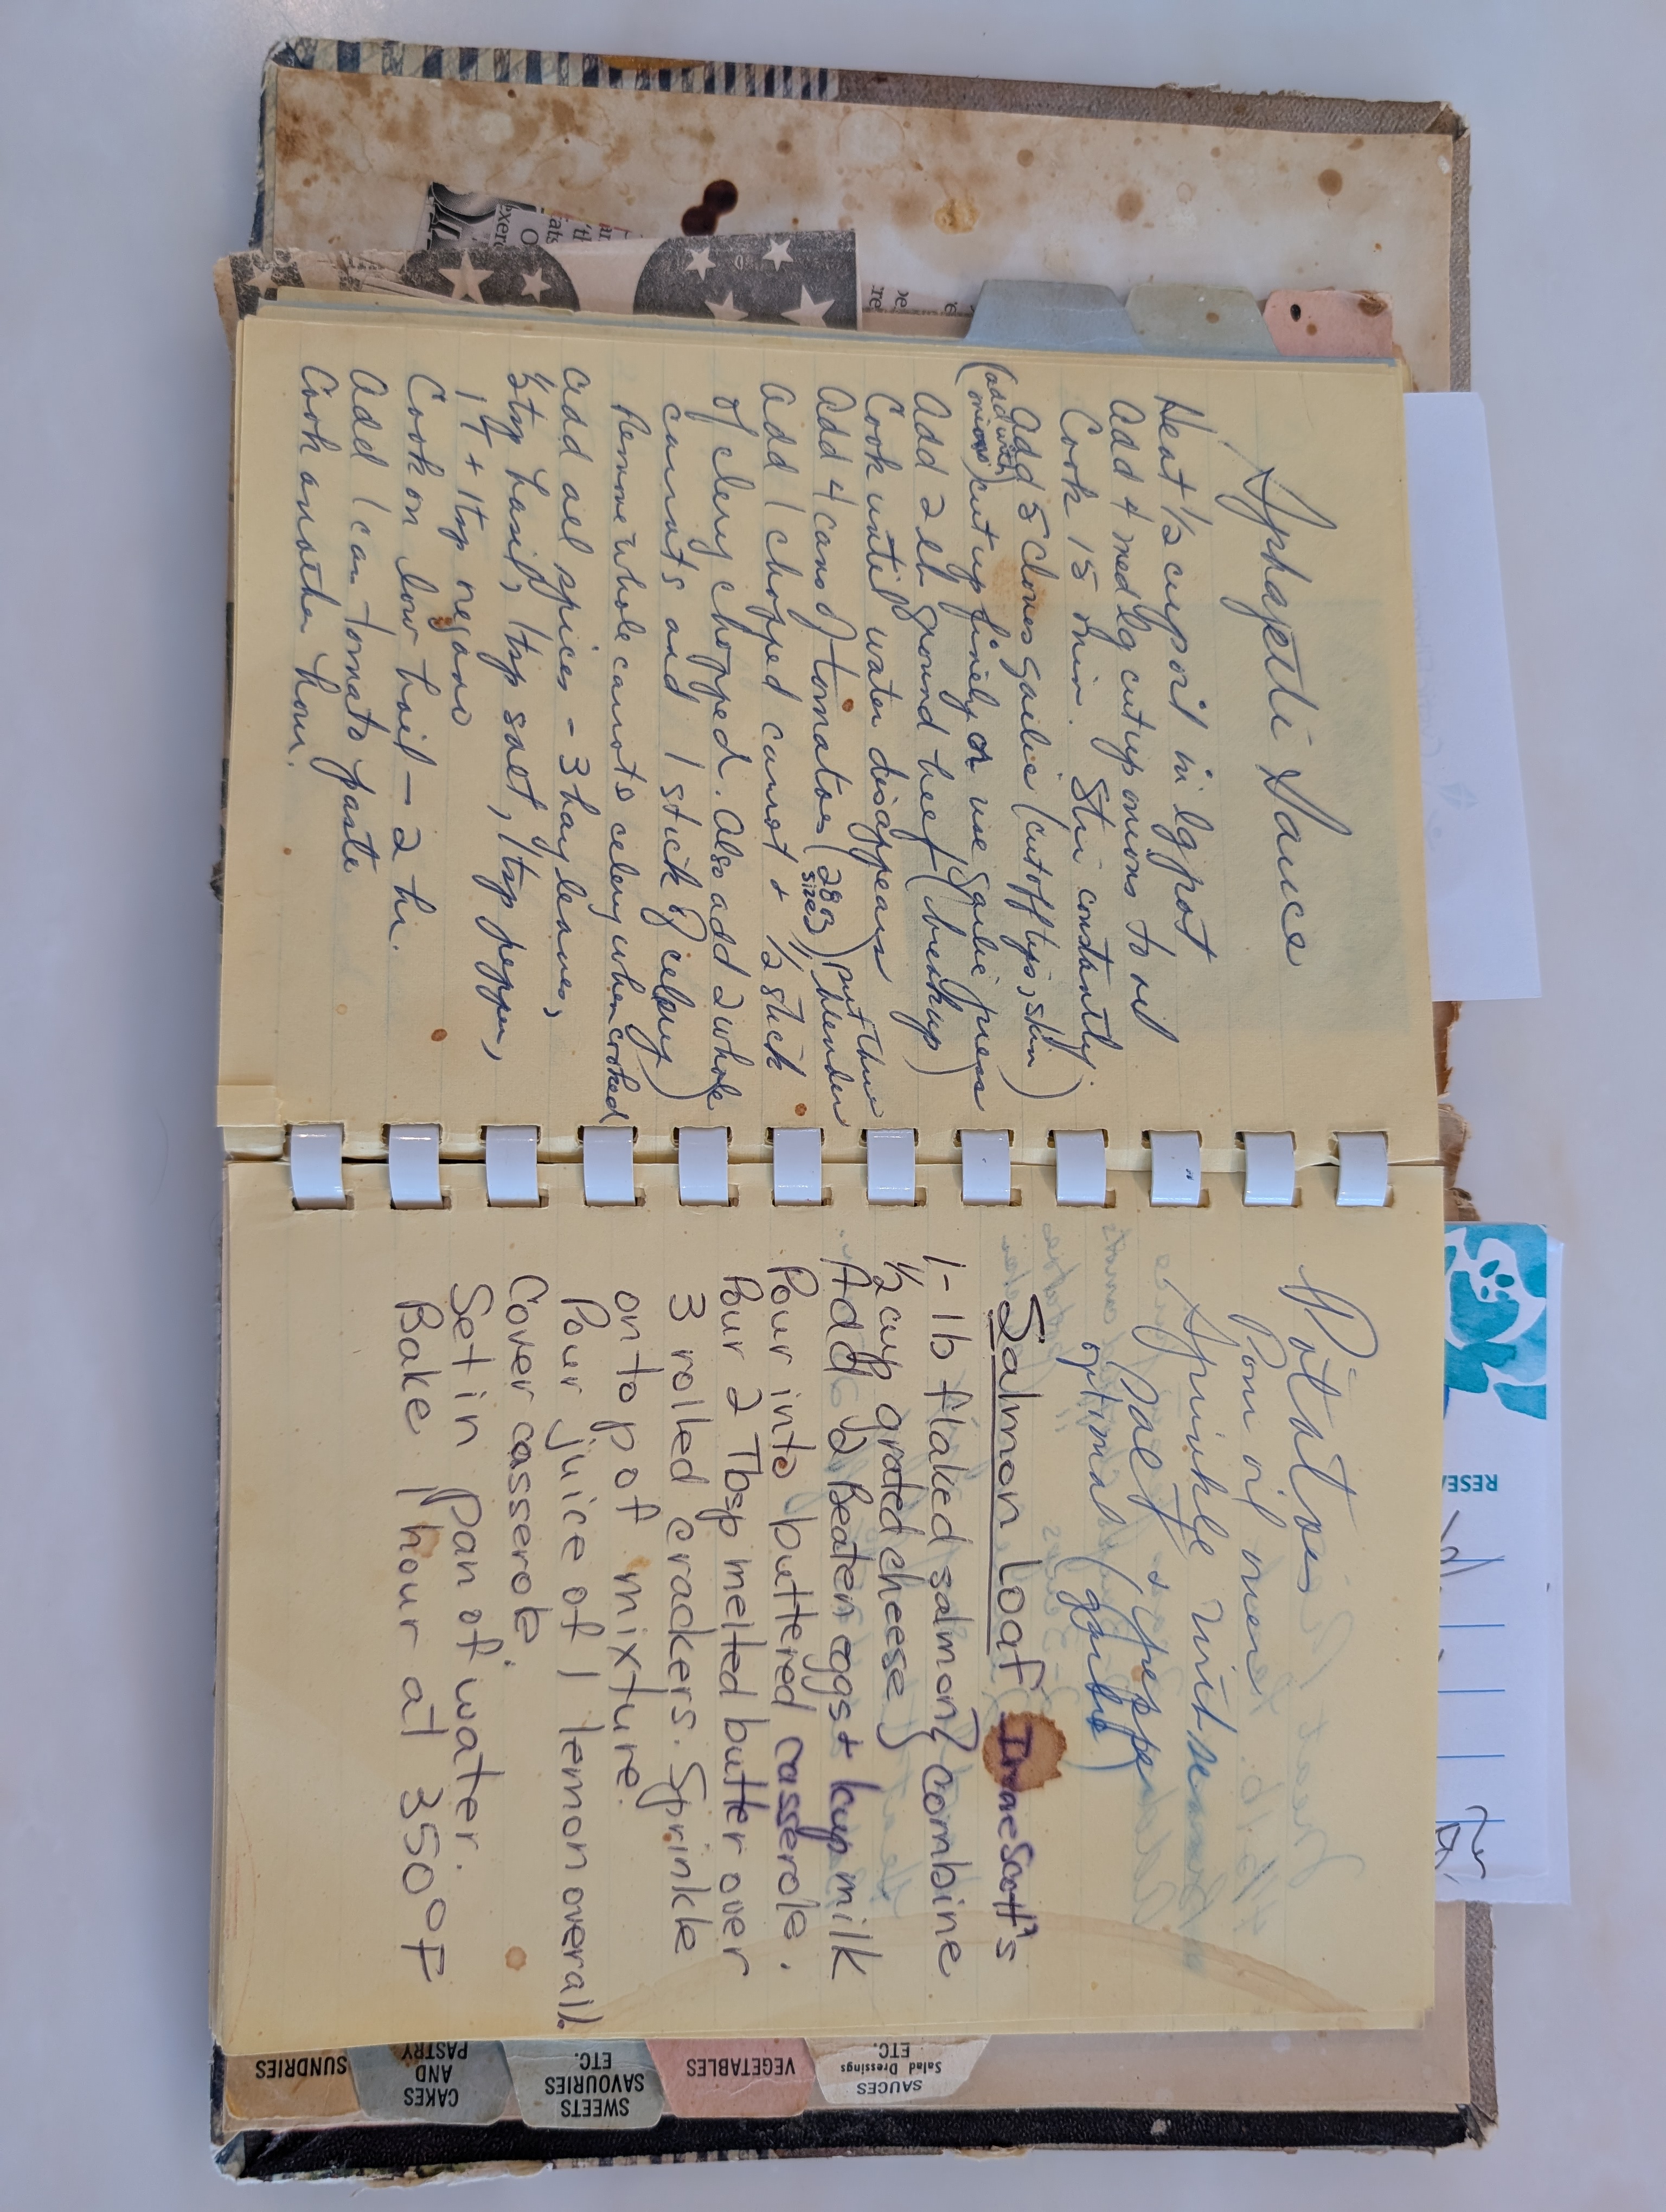 Sphagetti Sauce
Heat 1/3 cup oil in lg pot
Add 4 med lg cut up onions to oil
Cook 15 min. Stir constantly
Add 5 cloves garlic (cut off tips, skin)
(add with onions) cut up finely or use garlic press
Add 2 lb ground beef (break up)
Cook until water disappears
Add 4 cans of tomatoes (28 oz size) put thru blender
Add 1 chopped carrot + 1/2 stick
of celery chopped. Also add 2 whole
carrots and 1 stick of celery)
Remove whole carrots celery when cooked
Add all spices - 3 bay leaves,
1/2 tsp basil, 1 tsp salt, 1 tsp pepper,
1T + 1 tsp regano
Cook on low boil - 2 hr.
Add 1 can tomato paste
Cook another hour.
Potatoes
Pour oil over
Sprinkle with
Salt + pepper
optional (garlic)
Salmon Loaf Scott's
1-1b flaked salmon } combine
1/2 cup grated cheese
Add 2 Beaten eggs + 1 cup milk
Pour into buttered casserole.
Pour 2 Tbsp melted butter over
3 rolled crackers. Sprinkle
on top of mixture.
Pour juice of 1 lemon overall.
Cover casserole.
Set in pan of water.
Bake 1 hour at 350°F
SAUCES
Salad Dressings
ETC.
VEGETABLES
SWEETS
SAVOURIES
ETC.
CAKES
AND
PASTRY
SUNDRIES
RESEA